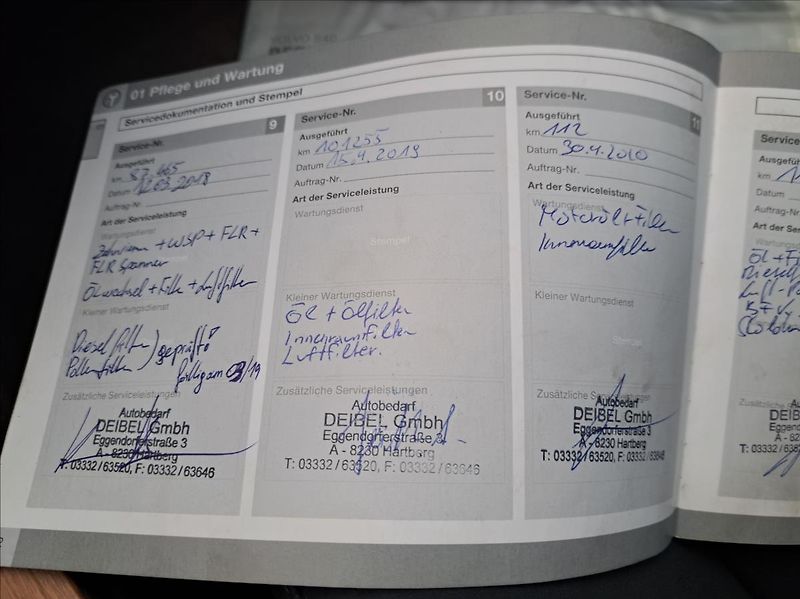 VOLVO S40
01 Pflege und Wartung
Servicedokumentation und Stempel
Service-Nr. 9
Ausgeführt
km 87.665
Datum 12.03.2018
Auftrag-Nr.
Art der Serviceleistung
Wartungsdienst
Zahnriemen + WSP + FLR +
FLR Spanner
Ölwechsel + Filter + Luftfilter
Kleiner Wartungsdienst
Dieselfilter
Pollenfilter ) geprüft!
fällig am 03/19
Zusätzliche Serviceleistungen
Autobedarf
DEIBEL GmbH
Eggendorferstraße 3
A - 8230 Hartberg
T: 03332/63520, F: 03332/63646
Service-Nr. 10
Ausgeführt
km 101255
Datum 15.4.2019
Auftrag-Nr.
Art der Serviceleistung
Wartungsdienst
Stempel
Kleiner Wartungsdienst
Öl + Ölfilter
Innenraumfilter
Luftfilter.
Zusätzliche Serviceleistungen
Autobedarf
DEIBEL GmbH
Eggendorferstraße 3
A - 8230 Hartberg
T: 03332/63520, F: 03332/63646
Service-Nr. 11
Ausgeführt
km 112
Datum 30.4.2020
Auftrag-Nr.
Art der Serviceleistung
Wartungsdienst
Motoröl + Filter
Innenraumfilter
Kleiner Wartungsdienst
Stempel
Zusätzliche Serviceleistungen
Autobedarf
DEIBEL GmbH
Eggendorferstraße 3
A - 8230 Hartberg
T: 03332/63520, F: 03332/63646
Service-Nr.
Ausgeführt
km
Datum
Auftrag-Nr.
Art der Ser
Wartungsd
Öl + Fi
Diesel
Luft-P
Kleiner W
Zusätzliche